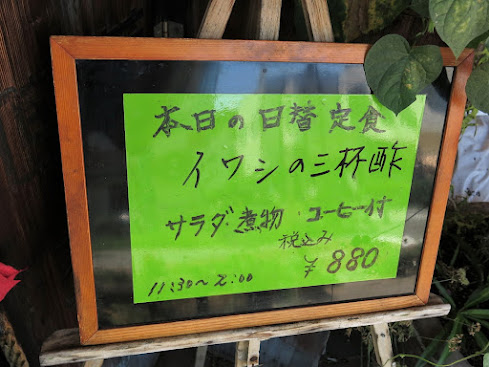 本日の日替定食
イワシの三杯酢
サラダ・煮物・コーヒー付
税込み
¥880
11:30～2:00